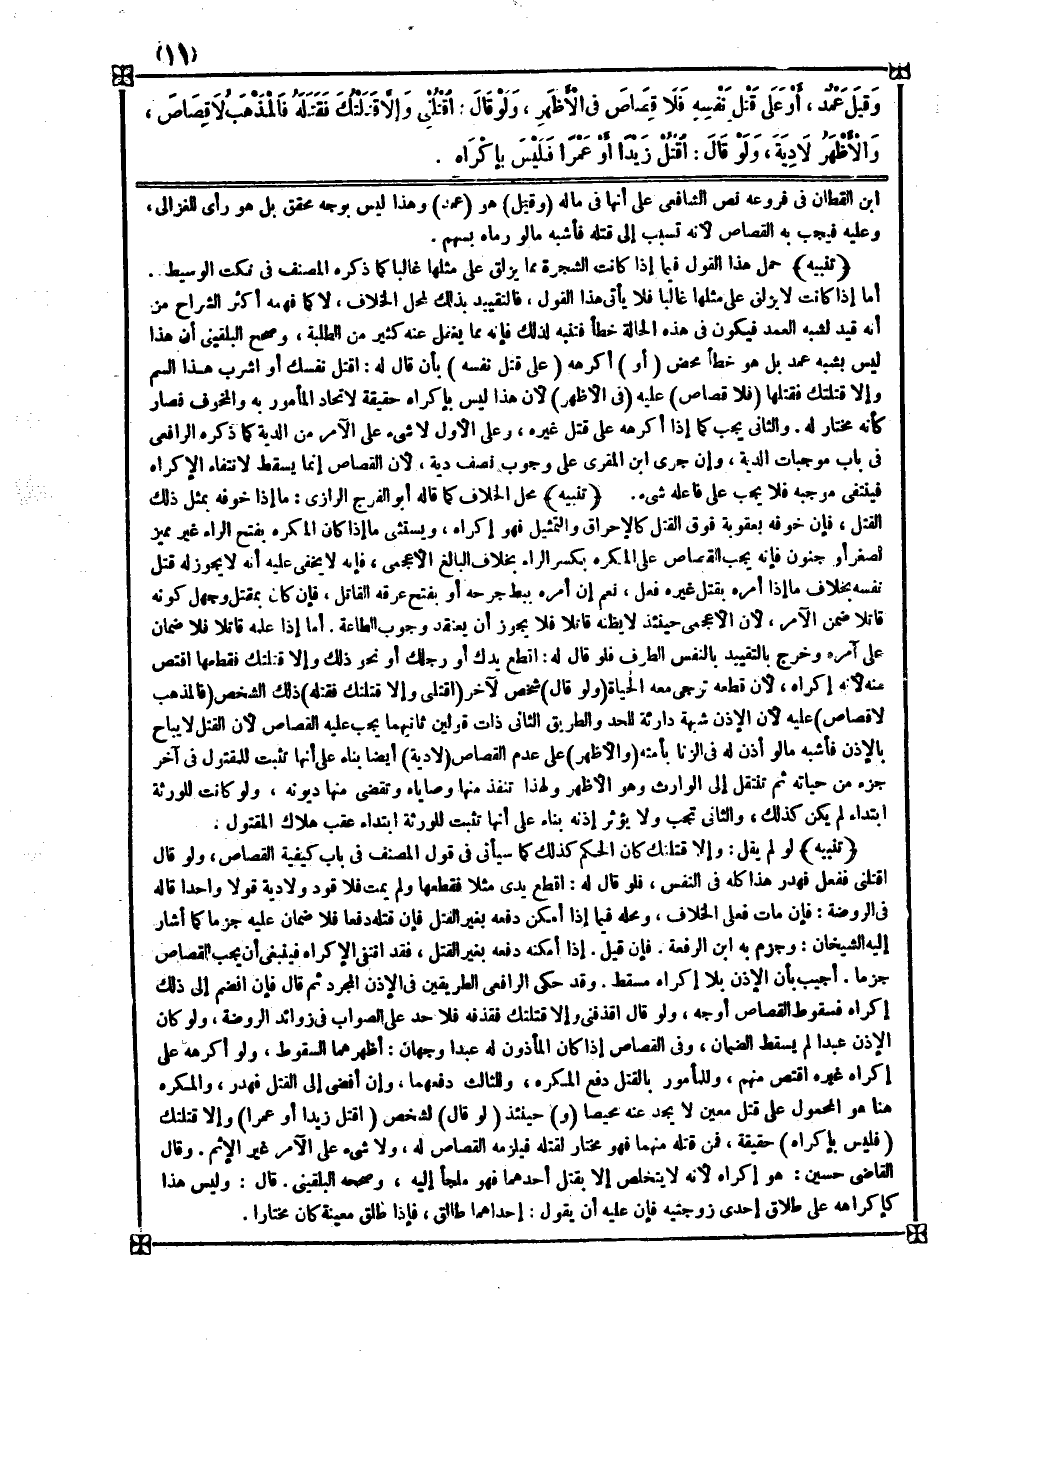 (١١)
وَقِيلَ عَمْدٌ ، أَوْ عَلَى قَتْلِ نَفْسِهِ فَلَا قِصَاصَ فِى الْأَظْهَرِ ، وَلَوْ قَالَ : اقْتُلْنِى وَإِلَّا قَتَلْتُكَ فَقَتَلَهُ فَالْمَذْهَبُ لَا قِصَاصَ ،
وَالْأَظْهَرُ لَادِيَةَ ، وَلَوْ قَالَ : اقْتُلْ زَيْدًا أَوْ عَمْرًا فَلَيْسَ بِإِكْرَاهٍ .
ابن القطان فى فروعه نص الشافعى على أنها فى ماله (وقيل) هو (عمد) وهذا ليس بوجه محقق بل هو رأى للغزالى ،
وعليه فيجب به القصاص لأنه تسبب إلى قتله فأشبه مالو رماه بسهم .
﴿ تنبيه ﴾ حمل هذا القول فيما إذا كانت الشجرة مما يزلق على مثلها غالبا كما ذكره المصنف فى نكت الوسيط .
أما إذا كانت لا يزلق على مثلها غالبا فلا يأتى هذا القول ، فالتقييد بذلك لمحل الخلاف ، لا كما فهمه أكثر الشراح من
أنه قيد لشبه العمد فيكون فى هذه الحالة خطأ فتنبه لذلك فإنه مما يغفل عنه كثير من الطلبة ، وصحح البلقينى أن هذا
ليس بشبه عمد بل هو خطأ محض ( أو ) أكرهه ( على قتل نفسه ) بأن قال له : اقتل نفسك أو اشرب هذا السم
وإلا قتلتك فقتلها (فلا قصاص) عليه (فى الأظهر) لأن هذا ليس بإكراه حقيقة لاتحاد المأمور به والمخوف فصار
كأنه مختار له . والثانى يجب كما إذا أكرهه على قتل غيره ، وعلى الأول لاشىء على الآمر من الدية كما ذكره الرافعى
فى باب موجبات الدية ، وإن جرى ابن المقرى على وجوب نصف دية ، لأن القصاص إنما يسقط لانتفاء الإكراه
فينتفى موجبه فلا يجب على فاعله شىء . ﴿ تنبيه ﴾ محل الخلاف كما قاله أبو الفرج الرازى : ماإذا خوفه بمثل ذلك
القتل ، فإن خوفه بعقوبة فوق القتل كالإحراق والتمثيل فهو إكراه ، ويستثنى ماإذا كان المكره بفتح الراء غير مميز
لصغر أو جنون فإنه يجب القصاص على المكره بكسر الراء بخلاف البالغ الأعجمى ، فإنه لايخفى عليه أنه لا يجوز له قتل
نفسه بخلاف ماإذا أمره بقتل غيره فعل ، نعم إن أمره ببط جرحه أو بفتح عرقه القاتل ، فإن كان بمقتل وجهل كونه
قاتلا ضمن الآمر ، لأن الأعجمى حينئذ لايظنه قاتلا فلا يجوز أن يعتقد وجوب الطاعة . أما إذا علمه قاتلا فلا ضمان
على آمره وخرج بالتقييد بالنفس الطرف فلو قال له : اقطع يدك أو رجلك أو نحو ذلك وإلا قتلتك فقطعها اقتص
منه لأنه إكراه ، لأن قطعه ترجى معه الحياة (ولو قال) شخص لآخر (اقتلنى وإلا قتلتك فقتله) ذلك الشخص (فالمذهب
لاقصاص) عليه لأن الإذن شبهة دارئة للحد والطريق الثانى ذات قولين ثانيهما يجب عليه القصاص لأن القتل لايباح
بالإذن فأشبه مالو أذن له فى الزنا بأمته (والأظهر) على عدم القصاص (لادية) أيضا بناء على أنها تثبت للمقتول فى آخر
جزء من حياته ثم تنتقل إلى الوارث وهو الأظهر ولهذا تنفذ منها وصاياه وتقضى منها ديونه ، ولو كانت للورثة
ابتداء لم يكن كذلك ، والثانى تجب ولا يؤثر إذنه بناء على أنها تثبت للورثة ابتداء عقب هلاك المقتول .
﴿ تنبيه ﴾ لو لم يقل : وإلا قتلتك كان الحكم كذلك كما سيأتى فى قول المصنف فى باب كيفية القصاص ، ولو قال
اقتلنى ففعل فهدر هذا كله فى النفس ، فلو قال له : اقطع يدى مثلا فقطعها ولم يمت فلا قود ولادية قولا واحدا قاله
فى الروضة : فإن مات فعلى الخلاف ، ومحله فيما إذا أمكن دفعه بغير القتل فإن قتله دفعا فلا ضمان عليه جزما كما أشار
إليه الشيخان : وجزم به ابن الرفعة . فإن قيل . إذا أمكنه دفعه بغير القتل ، فقد انتفى الإكراه فينبغى أن يجب القصاص
جزما . أجيب بأن الإذن بلا إكراه مسقط . وقد حكى الرافعى الطريقين فى الإذن المجرد ثم قال فإن انضم إلى ذلك
إكراه فسقوط القصاص أوجه ، ولو قال اقذفنى وإلا قتلتك فقذفه فلا حد على الصواب فى زوائد الروضة ، ولو كان
الإذن عبدا لم يسقط الضمان ، وفى القصاص إذا كان المأذون له عبدا وجهان : أظهرهما السقوط ، ولو أكرهه على
إكراه غيره اقتص منهم ، وللمأمور بالقتل دفع المكره ، وللثالث دفعهما ، وإن أفضى إلى القتل فهدر ، والمكره
هنا هو المحمول على قتل معين لا يجد عنه محيصا (و) حينئذ ( لو قال) لشخص ( اقتل زيدا أو عمرا) وإلا قتلتك
( فليس بإكراه) حقيقة ، فمن قتله منهما فهو مختار لقتله فيلزمه القصاص له ، ولا شىء على الآمر غير الإثم . وقال
القاضى حسين : هو إكراه لأنه لايتخلص إلا بقتل أحدهما فهو ملجأ إليه ، وصححه البلقينى . قال : وليس هذا
كإكراهه على طلاق إحدى زوجتيه فإن عليه أن يقول : إحداهما طالق ، فإذا طلق معينة كان مختارا .